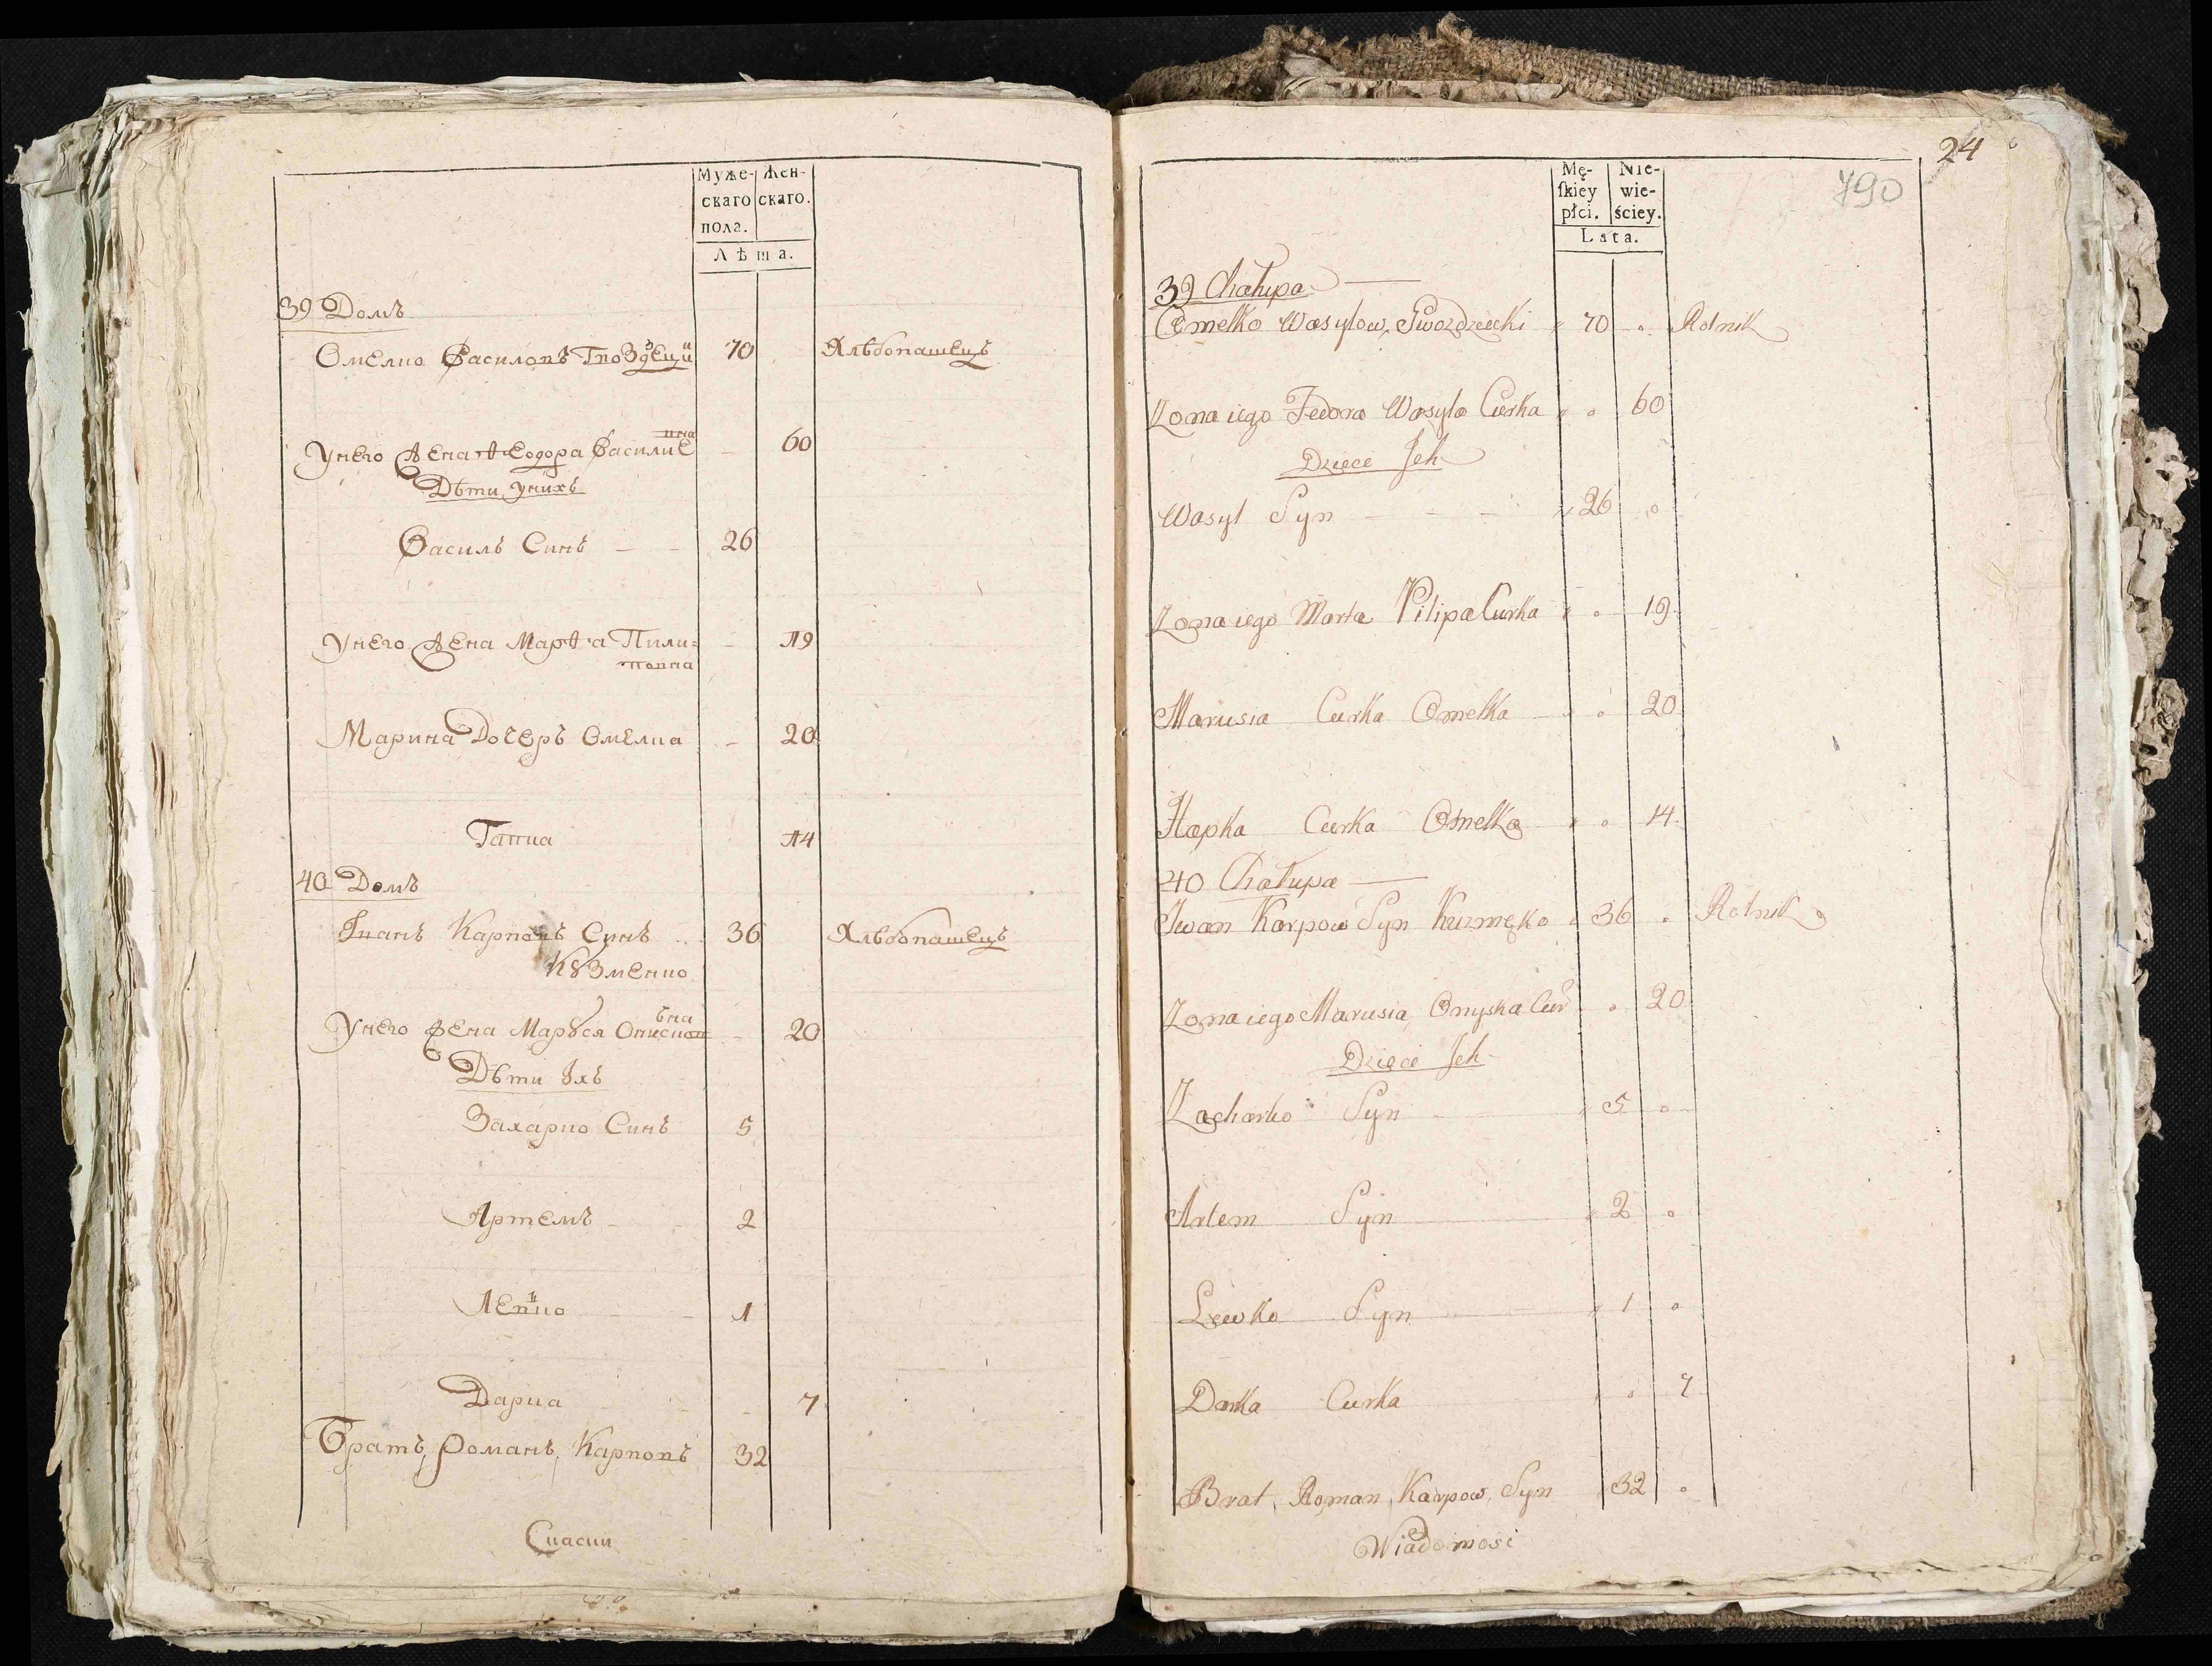 Муже-
скаго
пола.
Жен-
скаго.
Лѣта.
39 Домъ
Омелко Василовъ Гвоздецкий 70 Хлѣбопашецъ
Унего Жена Ѳеодора Василиевна 60
Дѣти унихъ
Василь Синъ 26
Унего Жена Марѳа Пили=
повна 19
Марина Дочеръ Омелка 20
Гапка 14
40 Домъ
Іванъ Карповъ Синъ 36 Хлѣбопашецъ
Кꙋзменко
Унего Жена Марꙋся Онисковъна 20
Дѣти Іхъ
Захарко Синъ 5
Артемъ 2
Левко 1
Дарка 7
Братъ, Романъ, Карповъ 32
24
790
Mę-
ſkiey
płci.
Nie-
wie-
ściey.
Lata.
39 Chałupa
Omelko Wasylow, Gwozdziecki 70 Rolnik
Zona iego Fedora Wasyla Curka 60
Dzieci Jch
Wasyl Syn 26
Zona iego Marta Pilipa Curka 19
Marusia Curka Omelka 20
Hapka Curka Omelka 14
40 Chałupa
Jwan Karpow Syn Kuzmęko 36 Rolnik
Zona iego Marusia Onyska Cur 20
Dzieci Jch
Zacharko Syn 5
Artem Syn 2
Lewko Syn 1
Darka Curka 7
Brat, Roman, Karpow, Syn 32
Wiadomosi